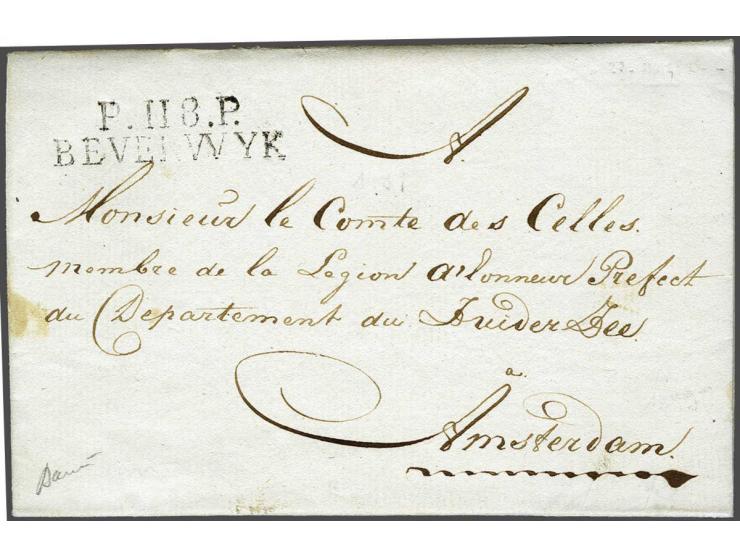 P.118.P.
BEVERWYK
A.
Monsieur le Comte des Celles.
membre de la Legion d'honneur Prefect
du Departement du Zuider Zee.
a.
Amsterdam.